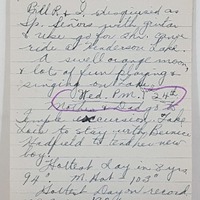 Bill R & I disguised as
Sp. Señors with guitar
& uke go for short canoe
ride at Henderson Lake.
A swell orange moon,
& lot of fun playing &
singing on Lake.
Wed. P.M. 24th
Mother & Dad go
Temple excursion. Take
to stay with Bernice
Hadfield to tend her new
boy.
"Hottest Day in 8 yrs
94° M. Hat = 103°
Hottest Day on record